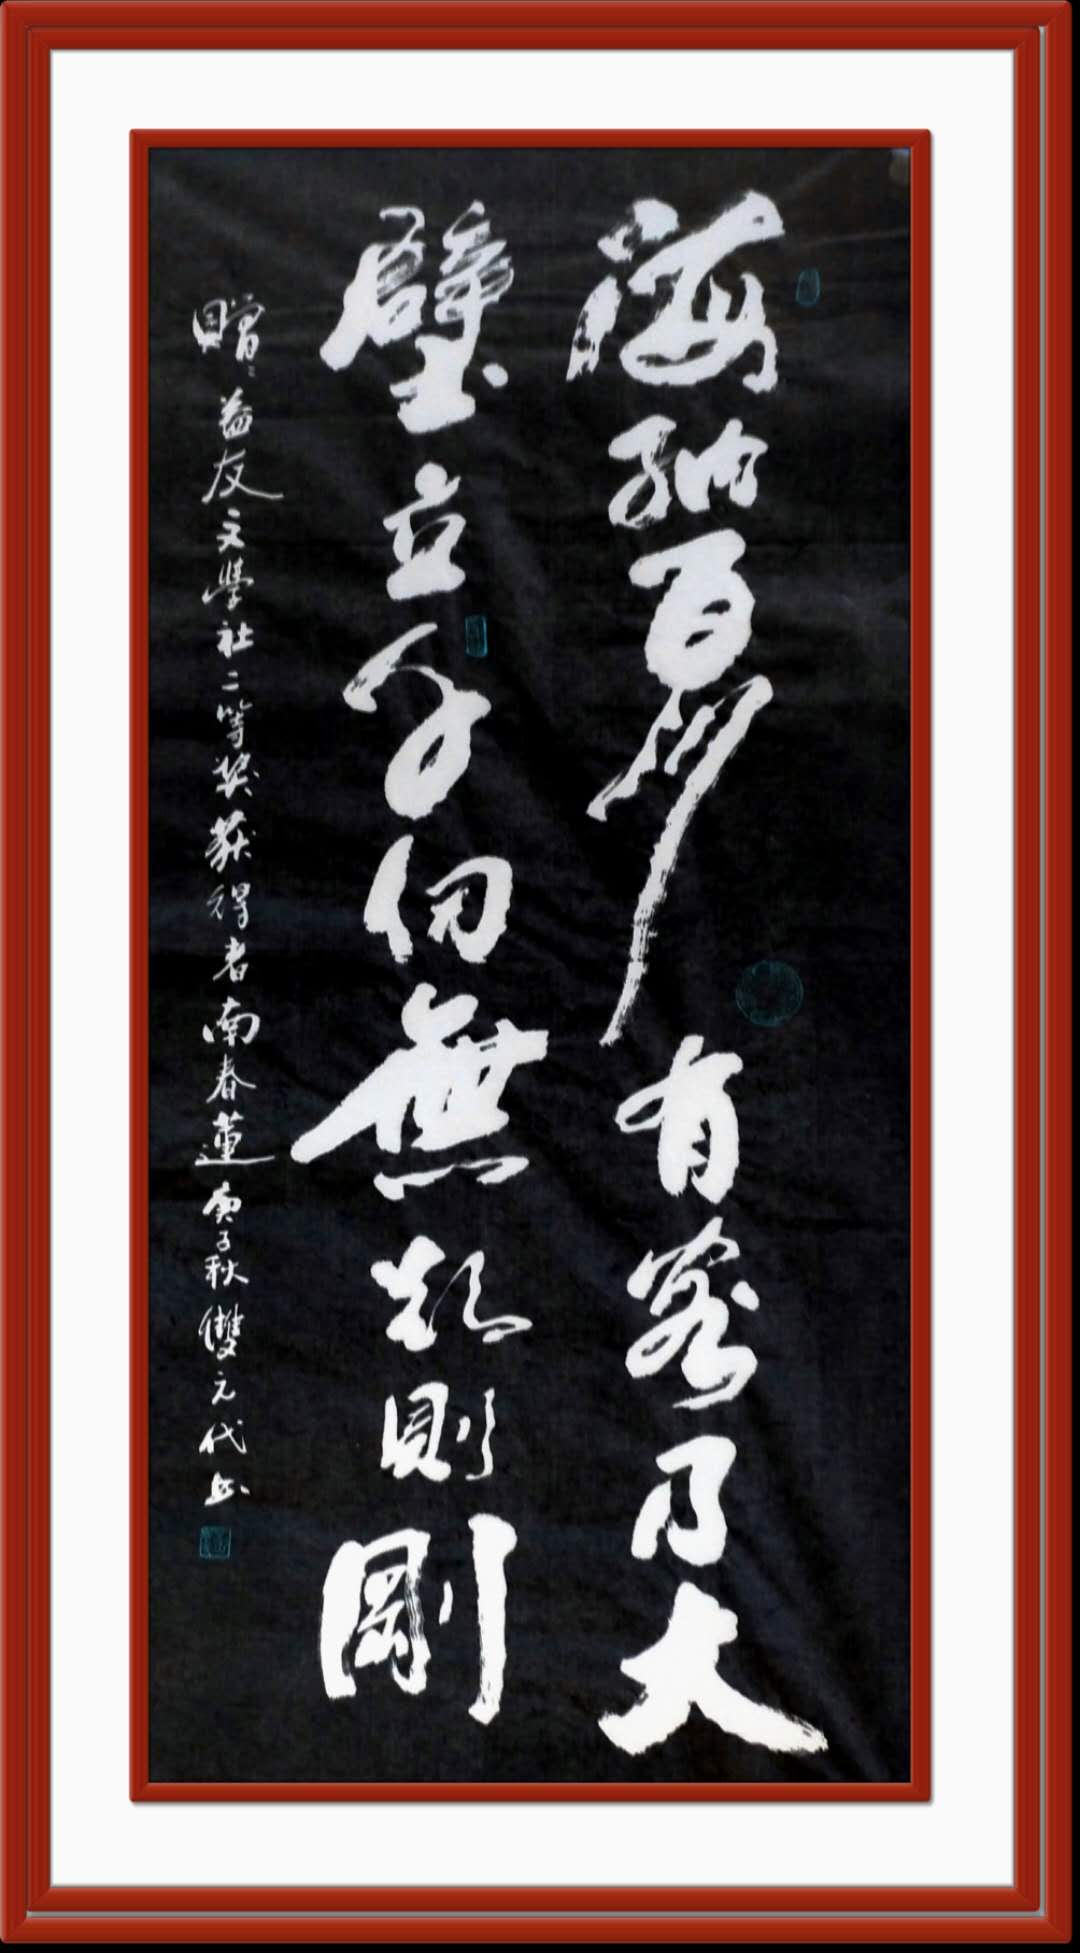 海納百川有容乃大
壁立千仞無欲則剛
贈：益友文學社二等奖获得者南春蓮庚子秋雙元代书